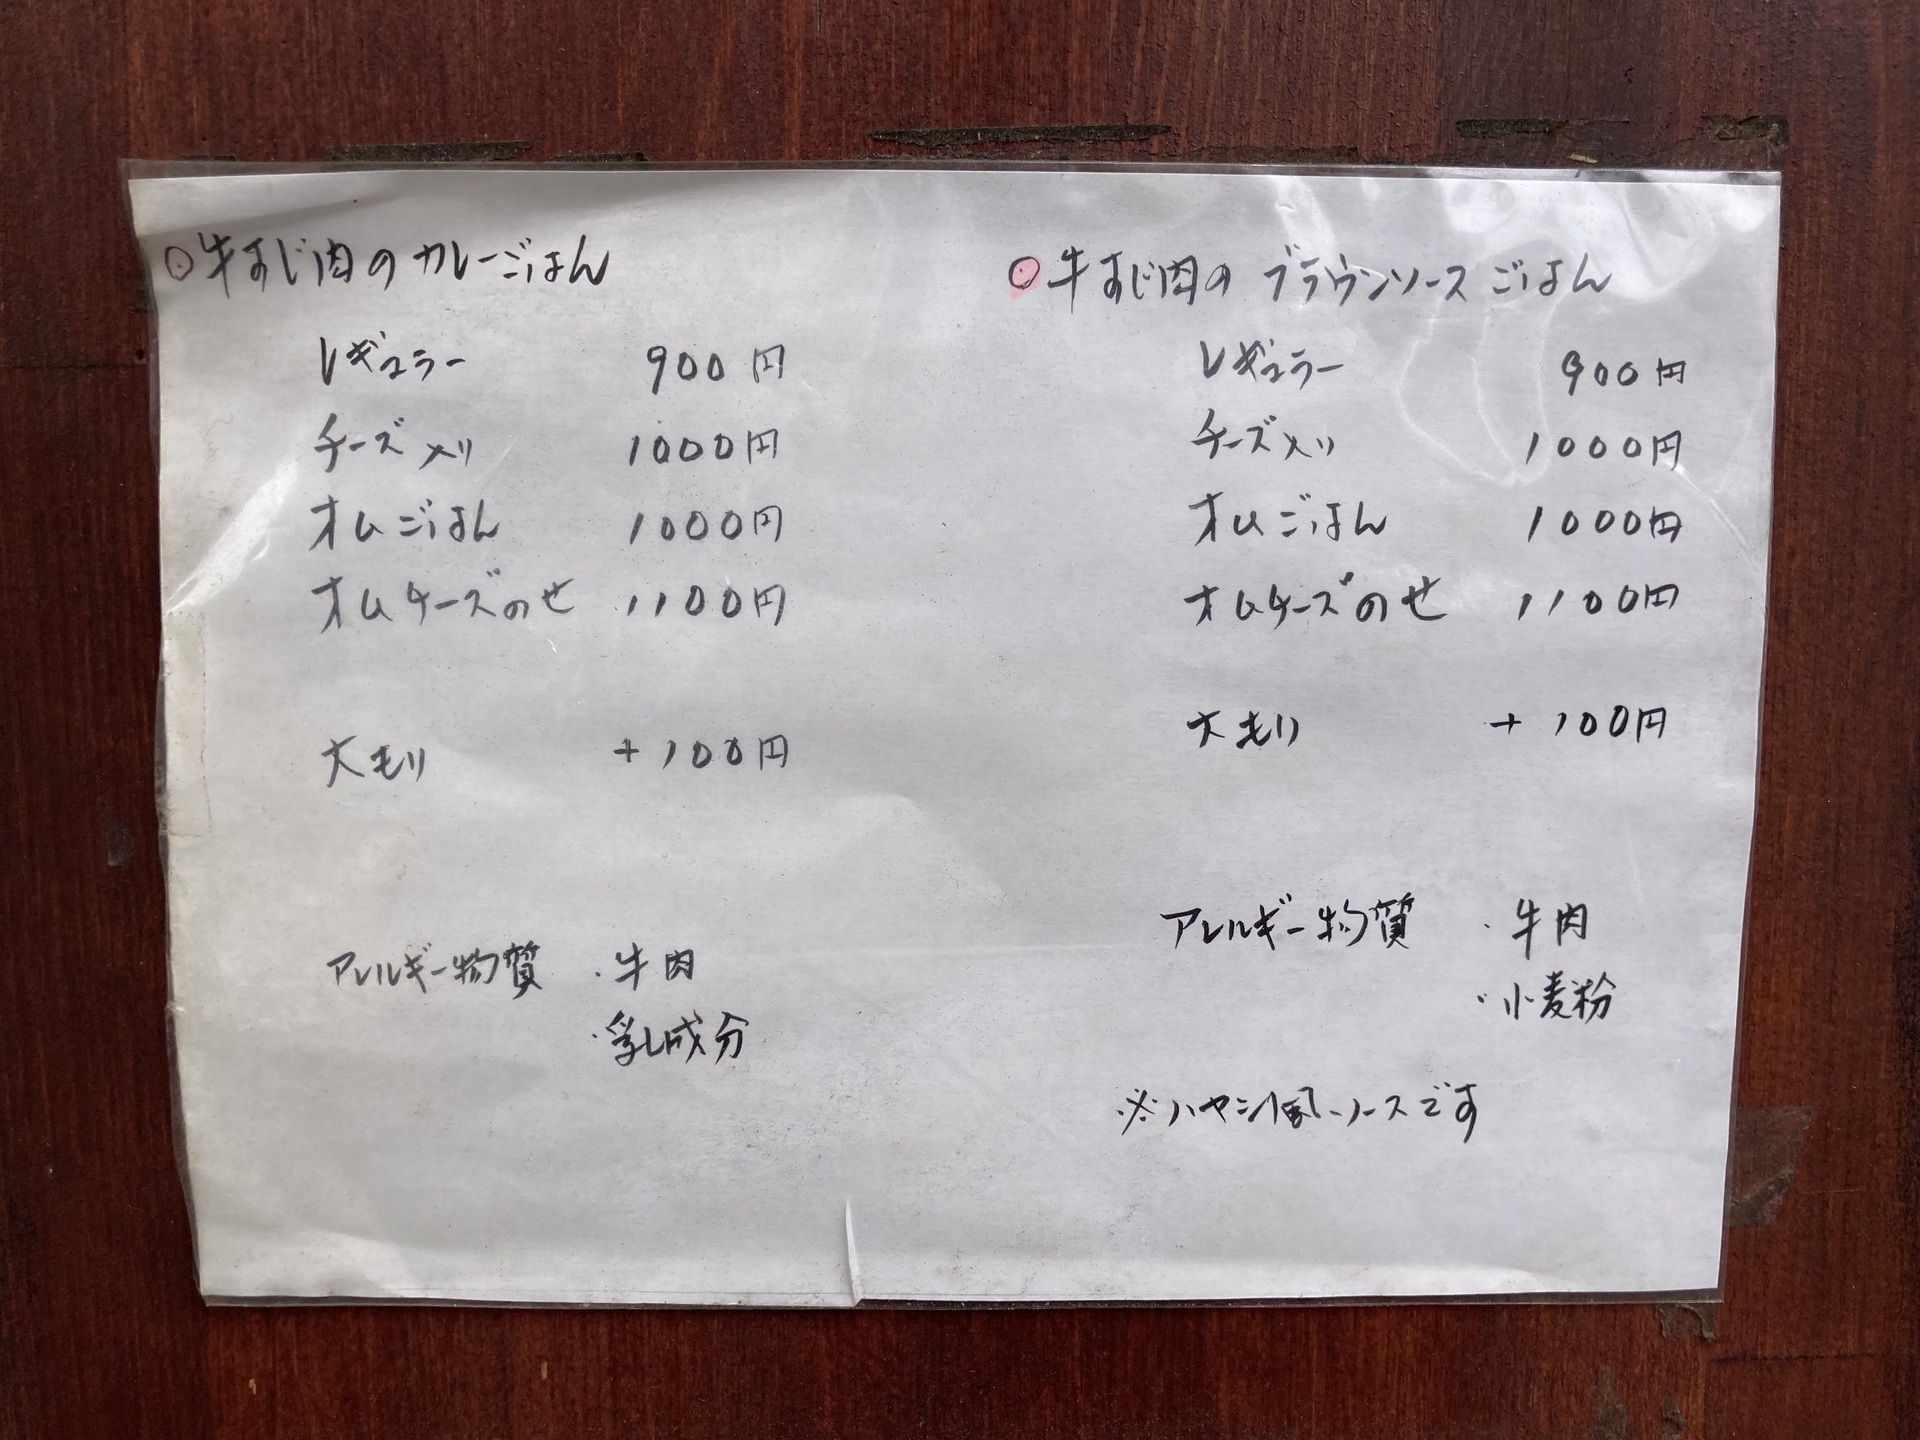 ○牛すじ肉のカレーごはん
レギュラー 900円
チーズ入り 1000円
オムごはん 1000円
オムチーズのせ 1100円
大もり +100円
アレルギー物質 ・牛肉
・乳成分
○牛すじ肉の ブラウンソースごはん
レギュラー 900円
チーズ入り 1000円
オムごはん 1000円
オムチーズのせ 1100円
大もり + 100円
アレルギー物質 ・牛肉
・小麦粉
※ハヤシ風ソースです